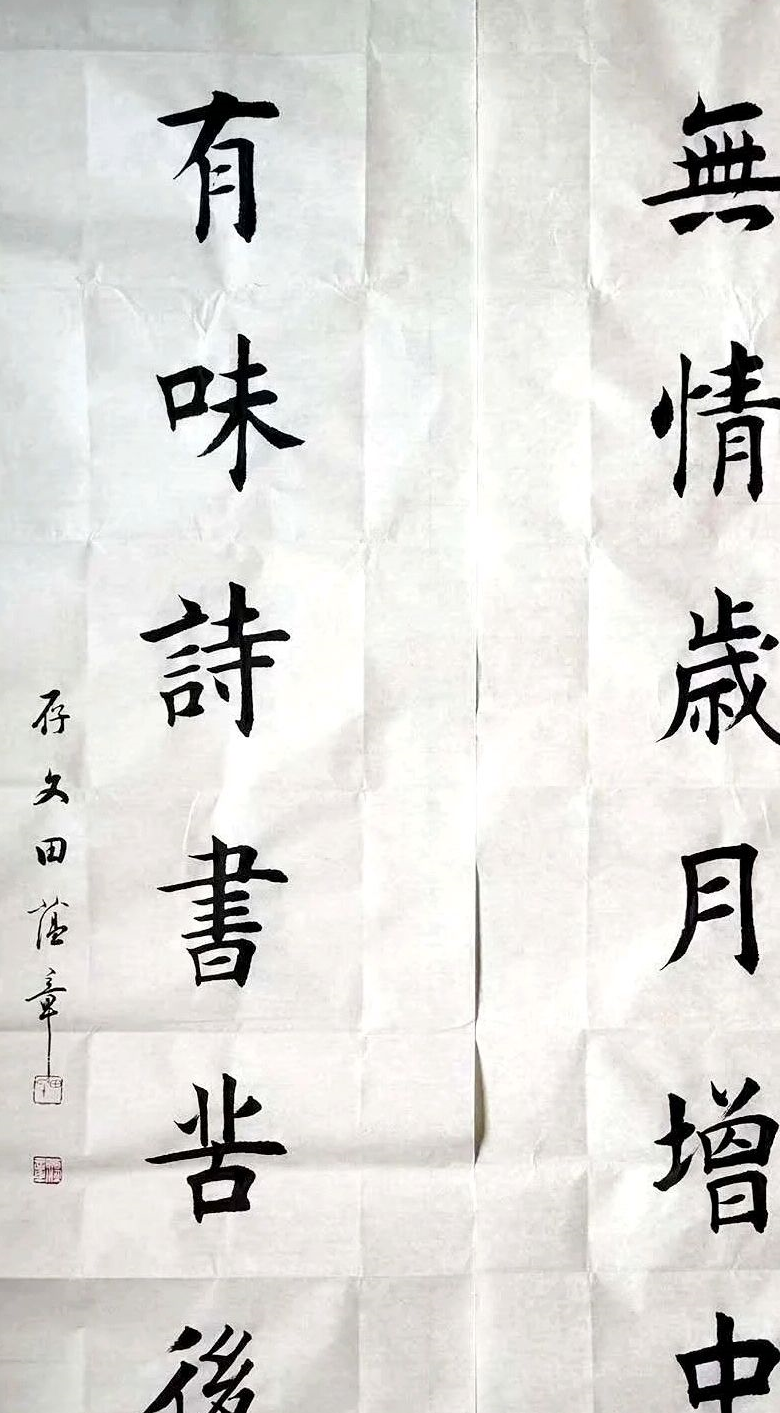 無情歳月增中
有味詩書苦後
存文田蘊章